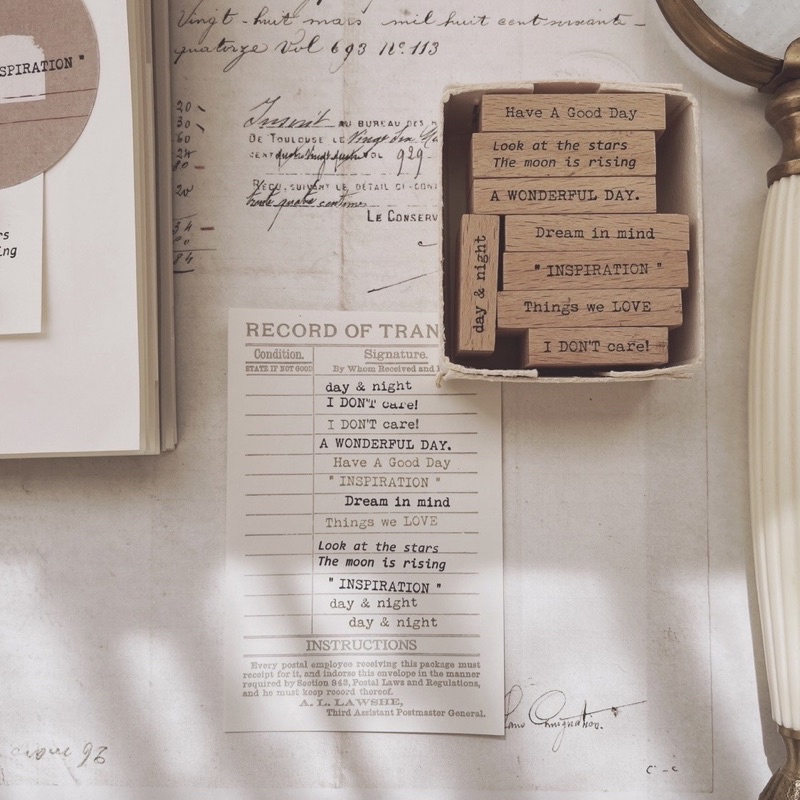 Vingt-huit mars mil huit cent soixante-
quatorze Vol 693 Nº 113
SPIRATION "
20
30
60
20
34
84
Inscrit AU BUREAU DES
DE TOULOUSE LE Vingt
CENT VOL 929
REÇU, SUIVANT LE DÉTAIL CI-CONT
trente quatre centimes
LE CONSERV
rs
ng
Have A Good Day
Look at the stars
The moon is rising
A WONDERFUL DAY.
Dream in mind
" INSPIRATION "
day & night
Things we LOVE
I DON'T care!
RECORD OF TRAN
Condition. Signature.
STATE IF NOT GOOD By Whom Received and
day & night
I DON'T care!
I DON'T care!
A WONDERFUL DAY.
Have A Good Day
" INSPIRATION "
Dream in mind
Things we LOVE
Look at the stars
The moon is rising
" INSPIRATION "
day & night
day & night
INSTRUCTIONS
Every postal employee receiving this package must
receipt for it, and indorse this envelope in the manner
required by Section 849, Postal Laws and Regulations,
and he must keep record thereof.
A. L. LAWSHE,
Third Assistant Postmaster General.